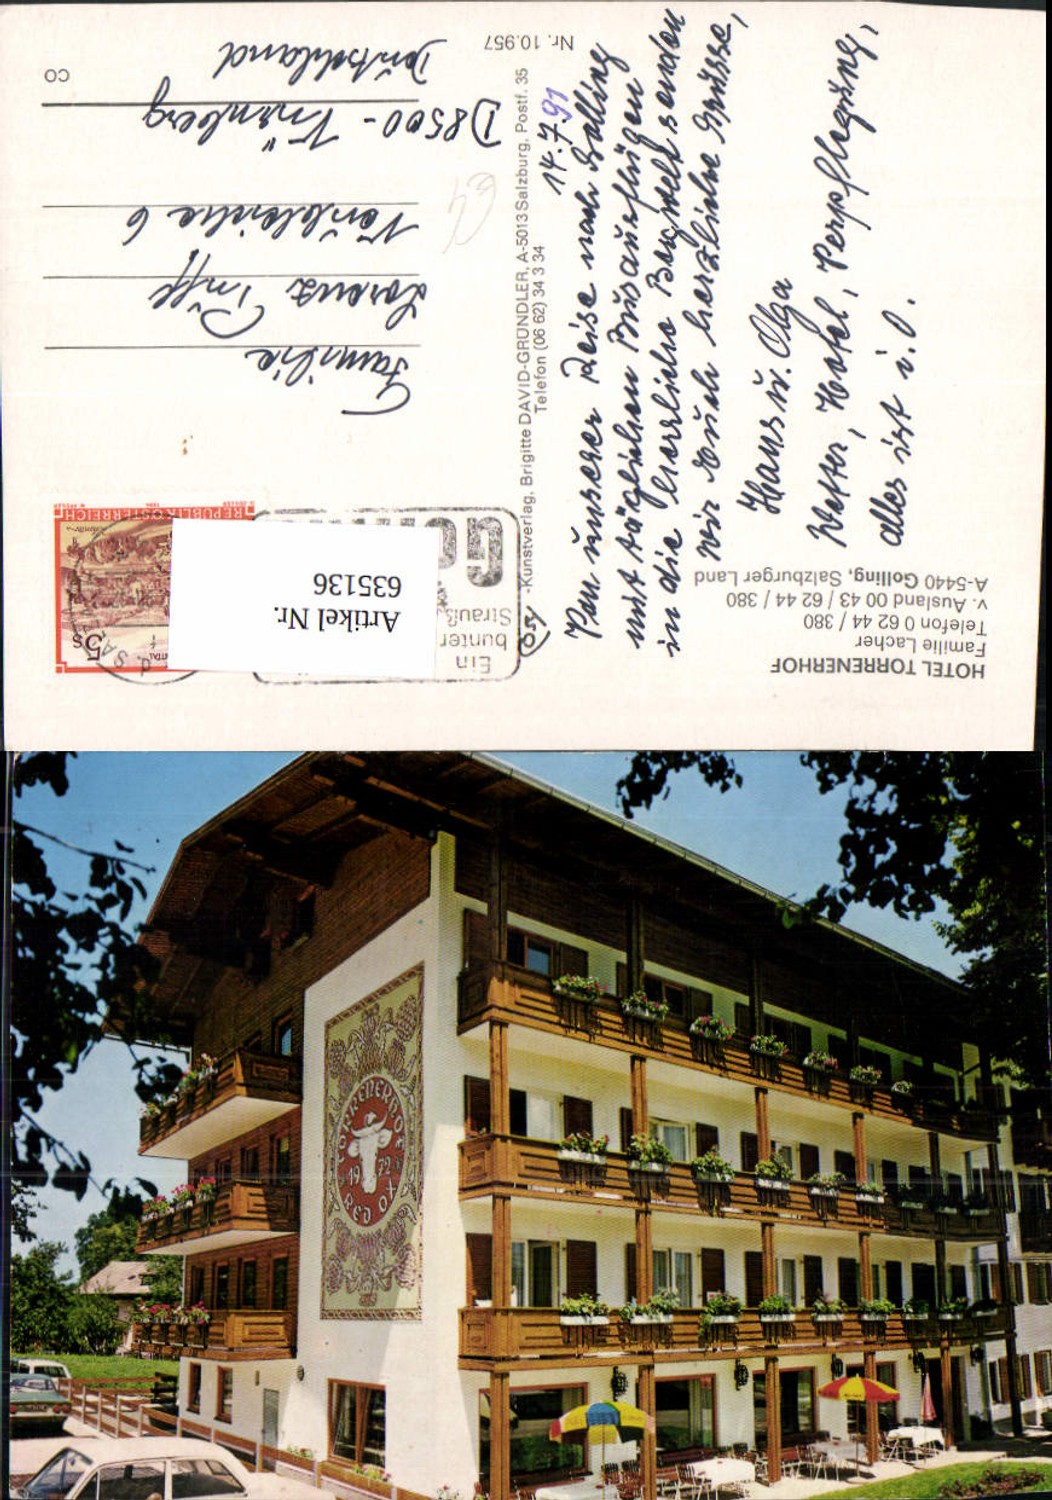 HOTEL TORRENERHOF
Familie Lacher
Telefon 0 62 44 / 380
v. Ausland 00 43 / 62 44 / 380
A-5440 Golling, Salzburger Land
14.7.91
Von unserer Reise nach Golling
mit täglichen Busausflügen
in die herrliche Bergwelt senden
wir Euch herzliche Grüsse,
Hans u. Olga
Wetter, Hotel, Verpflegung,
alles ist i.O.
Kunstverlag, Brigitte DAVID-GRÜNDLER, A-5013 Salzburg, Postf. 35
Telefon (06 62) 34 3 34
Nr. 10.957
Ein
bunter
Strauß
REPUBLIK ÖSTERREICH
5s
Artikel Nr.
635136
Familie
Lorenz
D8500 - Nürnberg
Deutschland
CO
TORRENERHOF
1972
RED OX